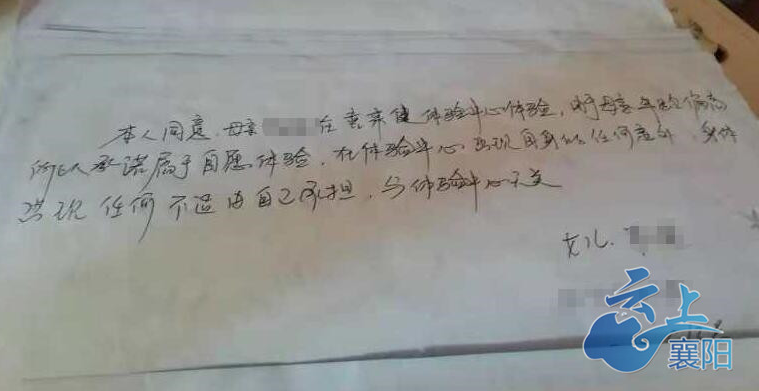 本人同意,母亲在袁亲健体验中心体验,由于母亲年纪偏高
所以承诺属于自愿体验,在体验中心出现自身的任何意外,身体
出现任何不适由自己承担,与体验中心无关
女儿.
云上
襄阳